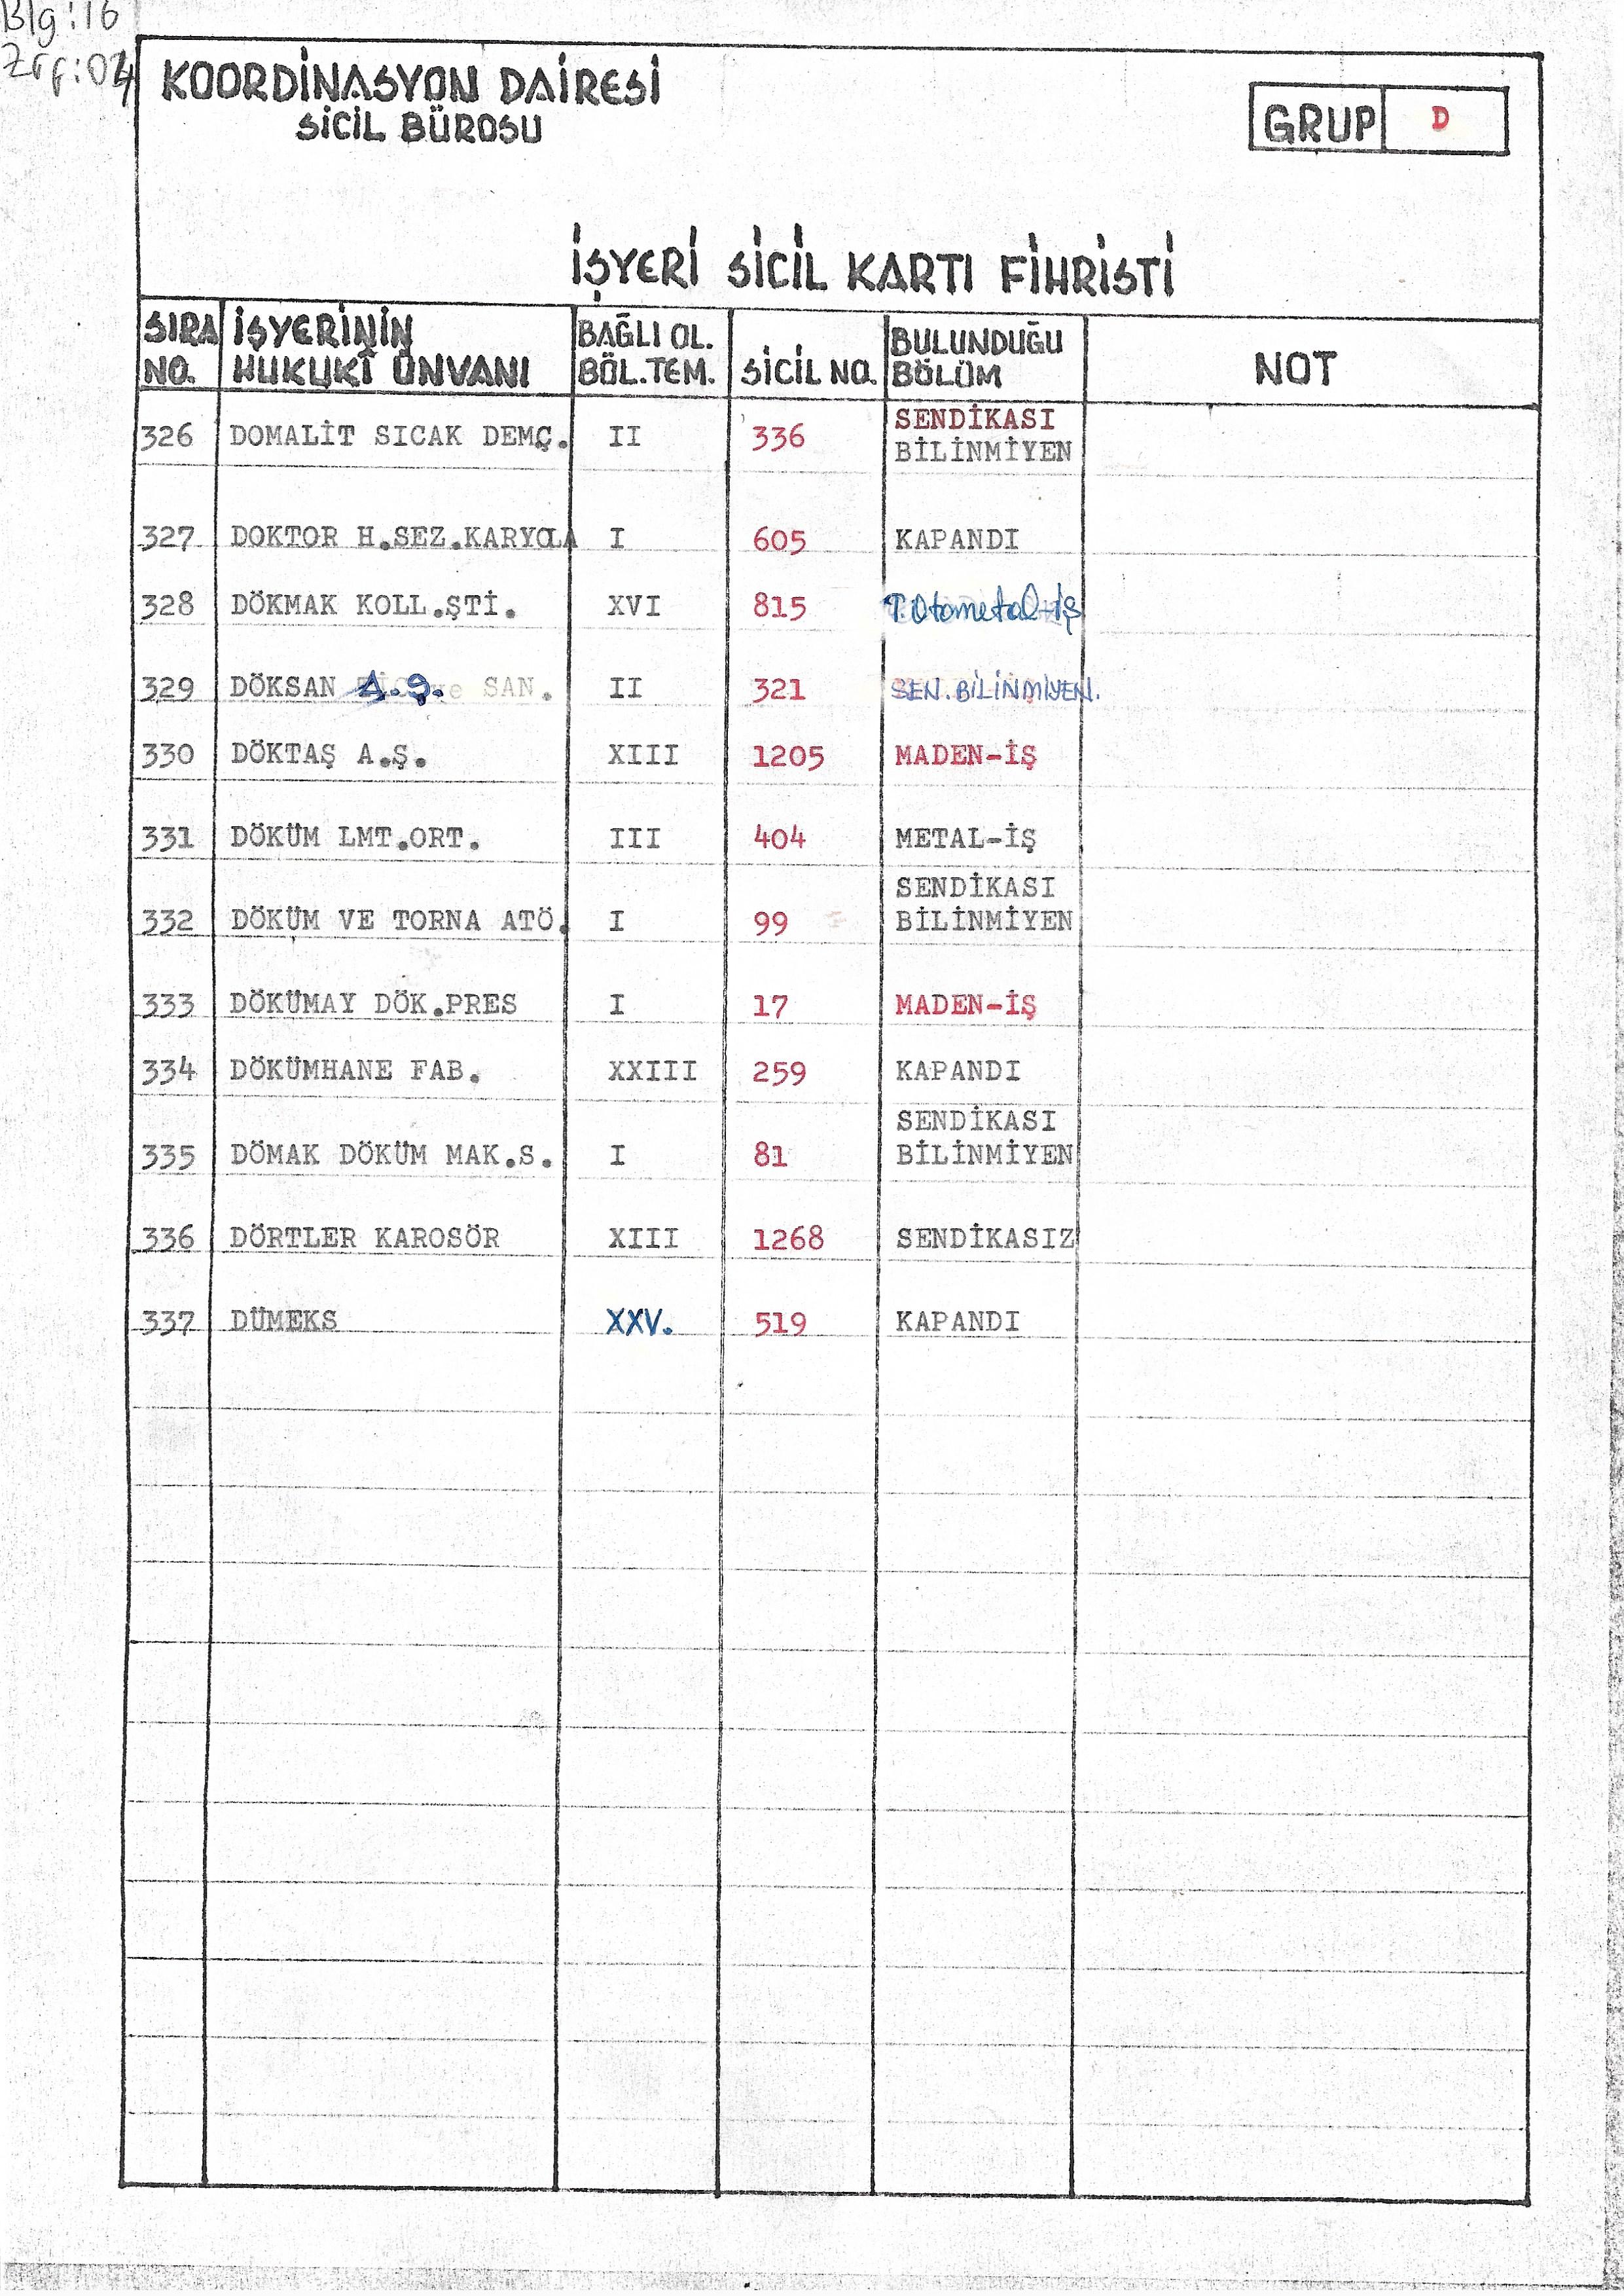 Blg:16
Zrf:04
KOORDİNASYON DAİRESİ
SİCİL BÜROSU
GRUP D
İŞYERİ SİCİL KARTI FİHRİSTİ
SIRA NO. İŞYERİNİN HUKUKİ ÜNVANI BAĞLI OL. BÖL.TEM. SİCİL NO. BULUNDUĞU BÖLÜM NOT
326 DOMALİT SICAK DEMÇ. II 336 SENDİKASI BİLİNMİYEN
327 DOKTOR H.SEZ.KARYOLA I 605 KAPANDI
328 DÖKMAK KOLL.ŞTİ. XVI 815 T.Otometal-iş
329 DÖKSAN A.Ş. SAN. II 321 SEN.BİLİNMİYEN.
330 DÖKTAŞ A.Ş. XIII 1205 MADEN-İŞ
331 DÖKÜM LMT.ORT. III 404 METAL-İŞ
332 DÖKÜM VE TORNA ATÖ. I 99 SENDİKASI BİLİNMİYEN
333 DÖKÜMAY DÖK.PRES I 17 MADEN-İŞ
334 DÖKÜMHANE FAB. XXIII 259 KAPANDI
335 DÖMAK DÖKÜM MAK.S. I 81 SENDİKASI BİLİNMİYEN
336 DÖRTLER KAROSÖR XIII 1268 SENDİKASIZ
337 DÜMEKS XXV. 519 KAPANDI